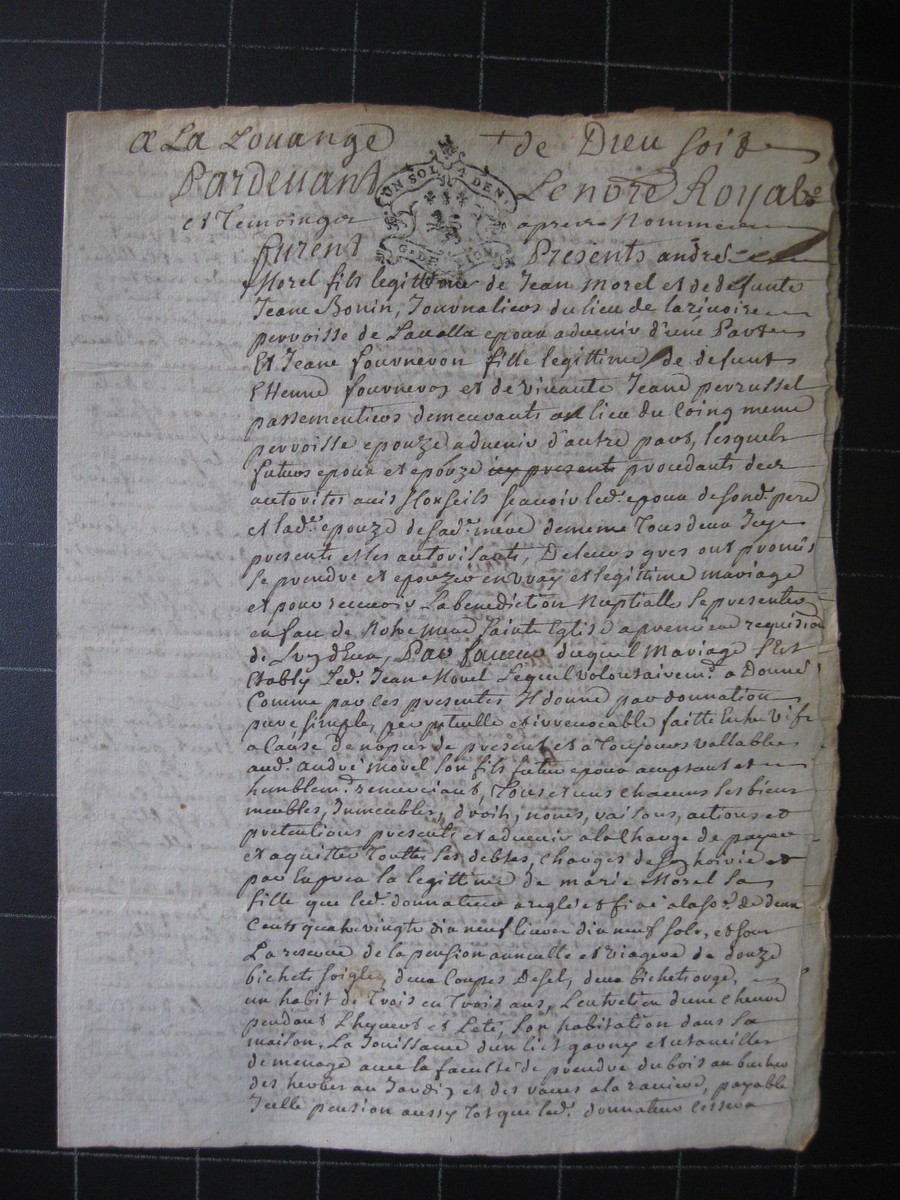 A La Louange + de Dieu soit
Pardevant Le notre Royal
UN SOL 4 DEN
et temoingts apres Nommes
furent Presents andré
Morel fils legittime de Jean Morel et de defunte
Jeane Bonin, Journaliers du lieu de larivoire
perroisse de Laualla epoux aduenir d'une Part
Et Jeane fourneron fille legittime de defunt
Ettienne fourneron et de viuante Jeane perrussel
passementiers demeurants au lieu du Coing meme
perroisse epouze aduenir d'autre part, lesquels
futurs epoux et epouze icy presents procedants des
autorites auis & Conseils scauoir led. epoux de sond. pere
et lad.e epouze de sad.e mere de meme tous deux Icy
presents et les autorisants, De leurs gres ont promis
se prendre et epouzer en vray et legittime mariage
et pour receuoir La benediction Nuptialle se presenter
en face de Notre mere Sainte Eglise a premiere requisition
de L'vn d'Eux, Par faueur duquel Mariage s'est
Etably led. Jean Morel Lequel volontairem.t a Donné
Comme par les presentes Il donne par donnation
pure simple, perpetuelle et irreuocable faitte Entre vifs
a Cause de nopces de present et a Toujours vallable
aud. André morel son fils futur epoux acceptant et
humblem.t remerciant, Tous et uns chacuns ses biens
meubles, Immeubles, droits, noms, raisons, actions et
pretentions presents et aduenir a la Charge de payer
et aquitter Touttes ses debtes, charges de son hoirie et
par Exprex la legittime de marie Morel sa
fille que led. donnateur a reglé et fixé a la so.e de deux
Cents quatre vingts dix neuf liures dix neuf sols, et sous
La reserue de la pension annuelle et viagere de douze
bichets soigle, deux Coupes de sel, deux bichets orge,
un habit de Trois en Trois ans, L'entretien d'une cheure
pendant L'hyuert et L'eté, son habitation dans sa
maison, La Jouissance d'un lict garny et utancilles
de menage auec la faculté de prendre du bois au bucher
des herbes au Jardin et des raues a la rauiere, payable
Icelle pension aussy Tot que led. donnateur cessera